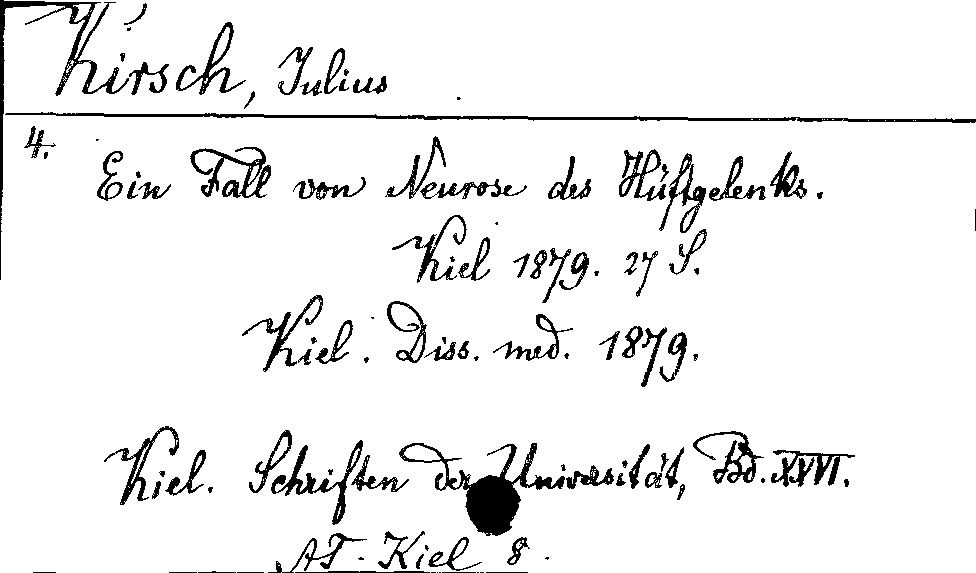 Kirsch, Julius
4.
Ein Fall von Neurose des Hüftgelenks.
Kiel 1879. 27 S.
Kiel. Diss. med. 1879.
Kiel. Schriften der Universität, Bd. XXVI.
AT-Kiel 8.